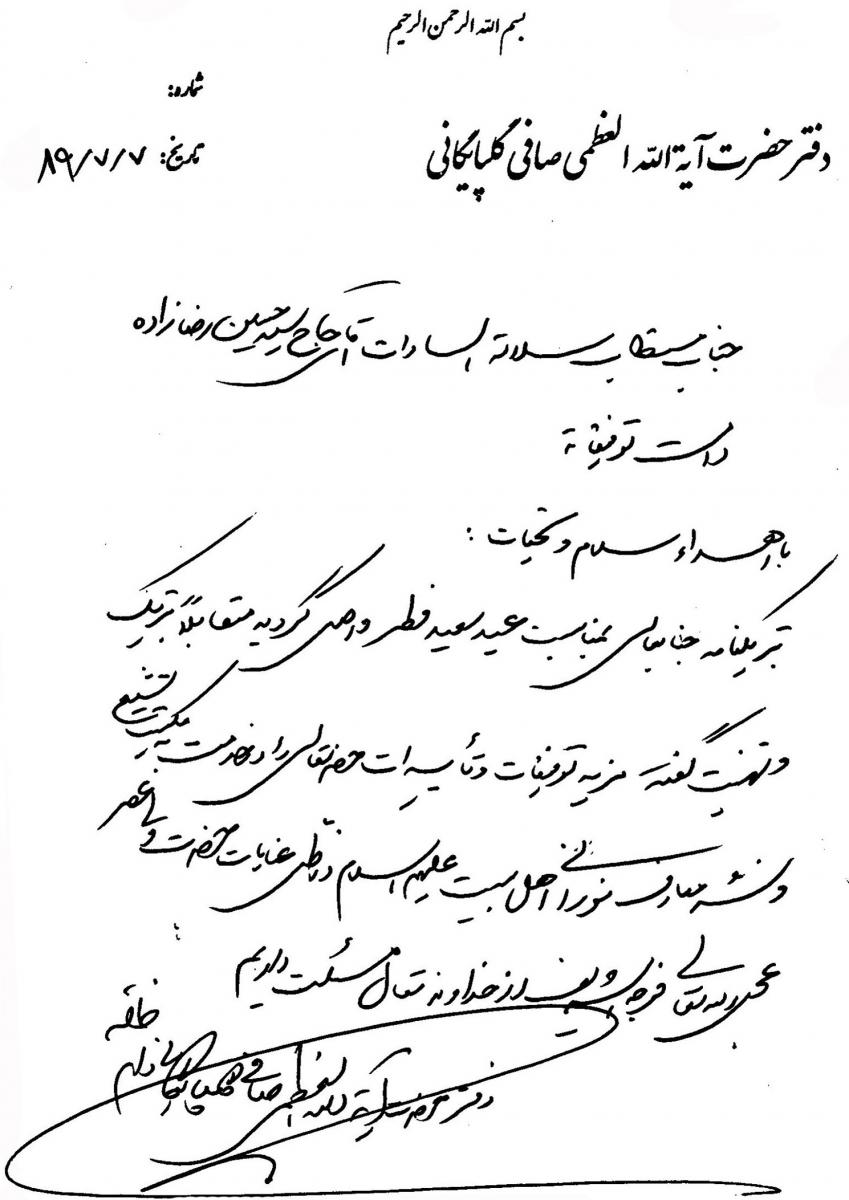 بسم الله الرحمن الرحیم
شماره:
تاریخ: ۸۹/۷/۷
دفتر حضرت آیة الله العظمی صافی گلپایگانی
جناب مستطاب سلالة السادات آقای حاج سید حسین رضازاده
دامت توفیقاته
با اهداء سلام و تحیات :
تبریکنامه جنابعالی بمناسبت عید سعید فطر واصل گردید متقابلاً تبریک
و تهنیت گفته مزید توفیقات و تأییدات حضرتعالی را در خدمت به مکتب تشیع
و نشر معارف نورانی اهل بیت علیهم السلام در ظل عنایات حضرت ولی عصر
عجل الله تعالی فرجه الشریف از خداوند متعال مسئلت داریم
دفتر حضرت آیة الله العظمی صافی گلپایگانی دام ظله